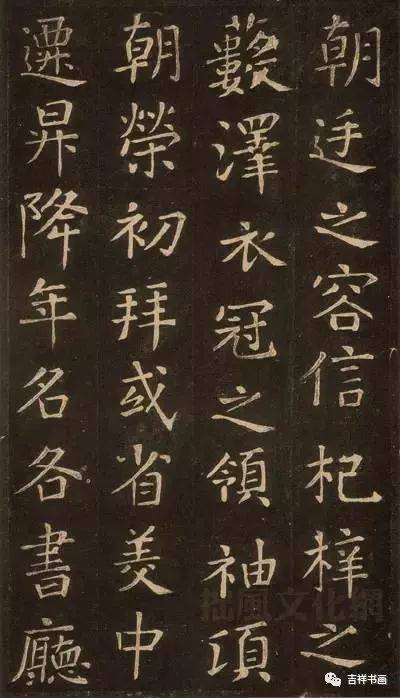 朝廷之容信杞梓之
藪澤衣冠之領袖項
朝榮初拜或省美中
遷昇降年名各書廳
拙風文化網
吉祥书画